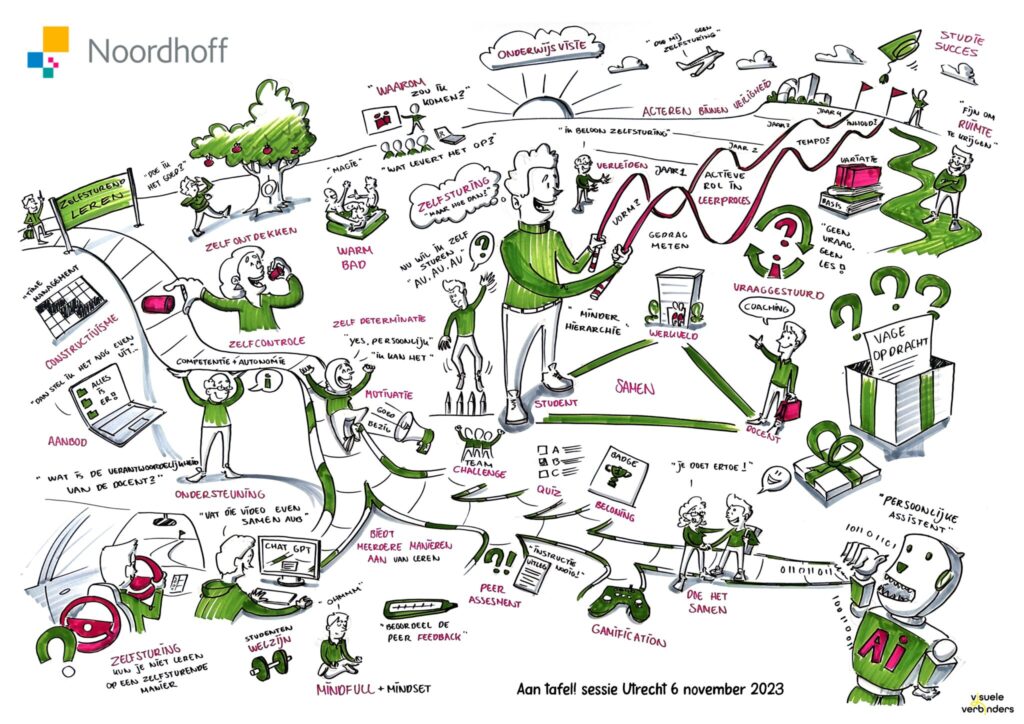 Noordhoff
ONDERWIJS VISIE
"DOE MIJ GEEN
ZELFSTURING"
STUDIE
SUCCES
"WAAROM
ZOU IK
KOMEN?"
"WAT LEVERT HET OP?"
ACTEREN BINNEN VEILIGHEID
JAAR 3
JAAR 4
INHOUD?
"FIJN OM
RUIMTE
TE KRIJGEN"
"DOE IK
HET GOED?"
ZELFSTUREND
LEREN
ZELF ONTDEKKEN
"MAGIE"
WARM
BAD
ZELFSTURING
"MAAR HOE DAN?"
"IK BELOON ZELFSTURING"
VERLEIDEN
JAAR 1
JAAR 2
TEMPO?
VORM?
ACTIEVE
ROL IN
LEERPROCES
GEDRAG
METEN
VARIATIE
BASIS
"GEEN
VRAAG,
GEEN
LES!"
?
VRAAGGESTUURD
"TIME
MANAGEMENT"
CONSTRUCTIVISME
ZELFCONTROLE
NU WIL IK ZELF
STUREN...
"AU, AU, AU"
?
ZELF DETERMINATIE
"YES, PERSOONLIJK"
"IK KAN HET"
"MINDER
HIËRARCHIE"
WERKVELD
COACHING
SAMEN
STUDENT
DOCENT
???
VAGE
OPDRACHT
"DAN STEL IK HET NOG EVEN
UIT..."
ALLES
IS
ER!!
AANBOD
COMPETENTIE + AUTONOMIE
i
MOTIVATIE
GOED
BEZIG
"WAT IS DE VERANTWOORDELIJKHEID
VAN DE DOCENT?"
ONDERSTEUNING
TEAM
CHALLENGE
A
B
C
QUIZ
BADGE
BELONING
"JE DOET ERTOE!"
DOE HET
SAMEN
"PERSOONLIJKE
ASSISTENT"
"VAT DIE VIDEO EVEN
SAMEN AUB"
CHAT GPT
BIEDT
MEERDERE MANIEREN
AAN VAN LEREN
?!
PEER
ASSESMENT
"INSTRUCTIE
NODIG!"
UITLEG
GAMIFICATION
Ai
?
ZELFSTURING
KUN JE NIET LEREN
OP EEN ZELFSTURENDE
MANIER
STUDENTEN
WELZIJN
OHMMM
MINDFULL + MINDSET
"BEOORDEEL DE
PEER FEEDBACK"
Aan tafel! sessie Utrecht 6 november 2023
visuele
verbinders